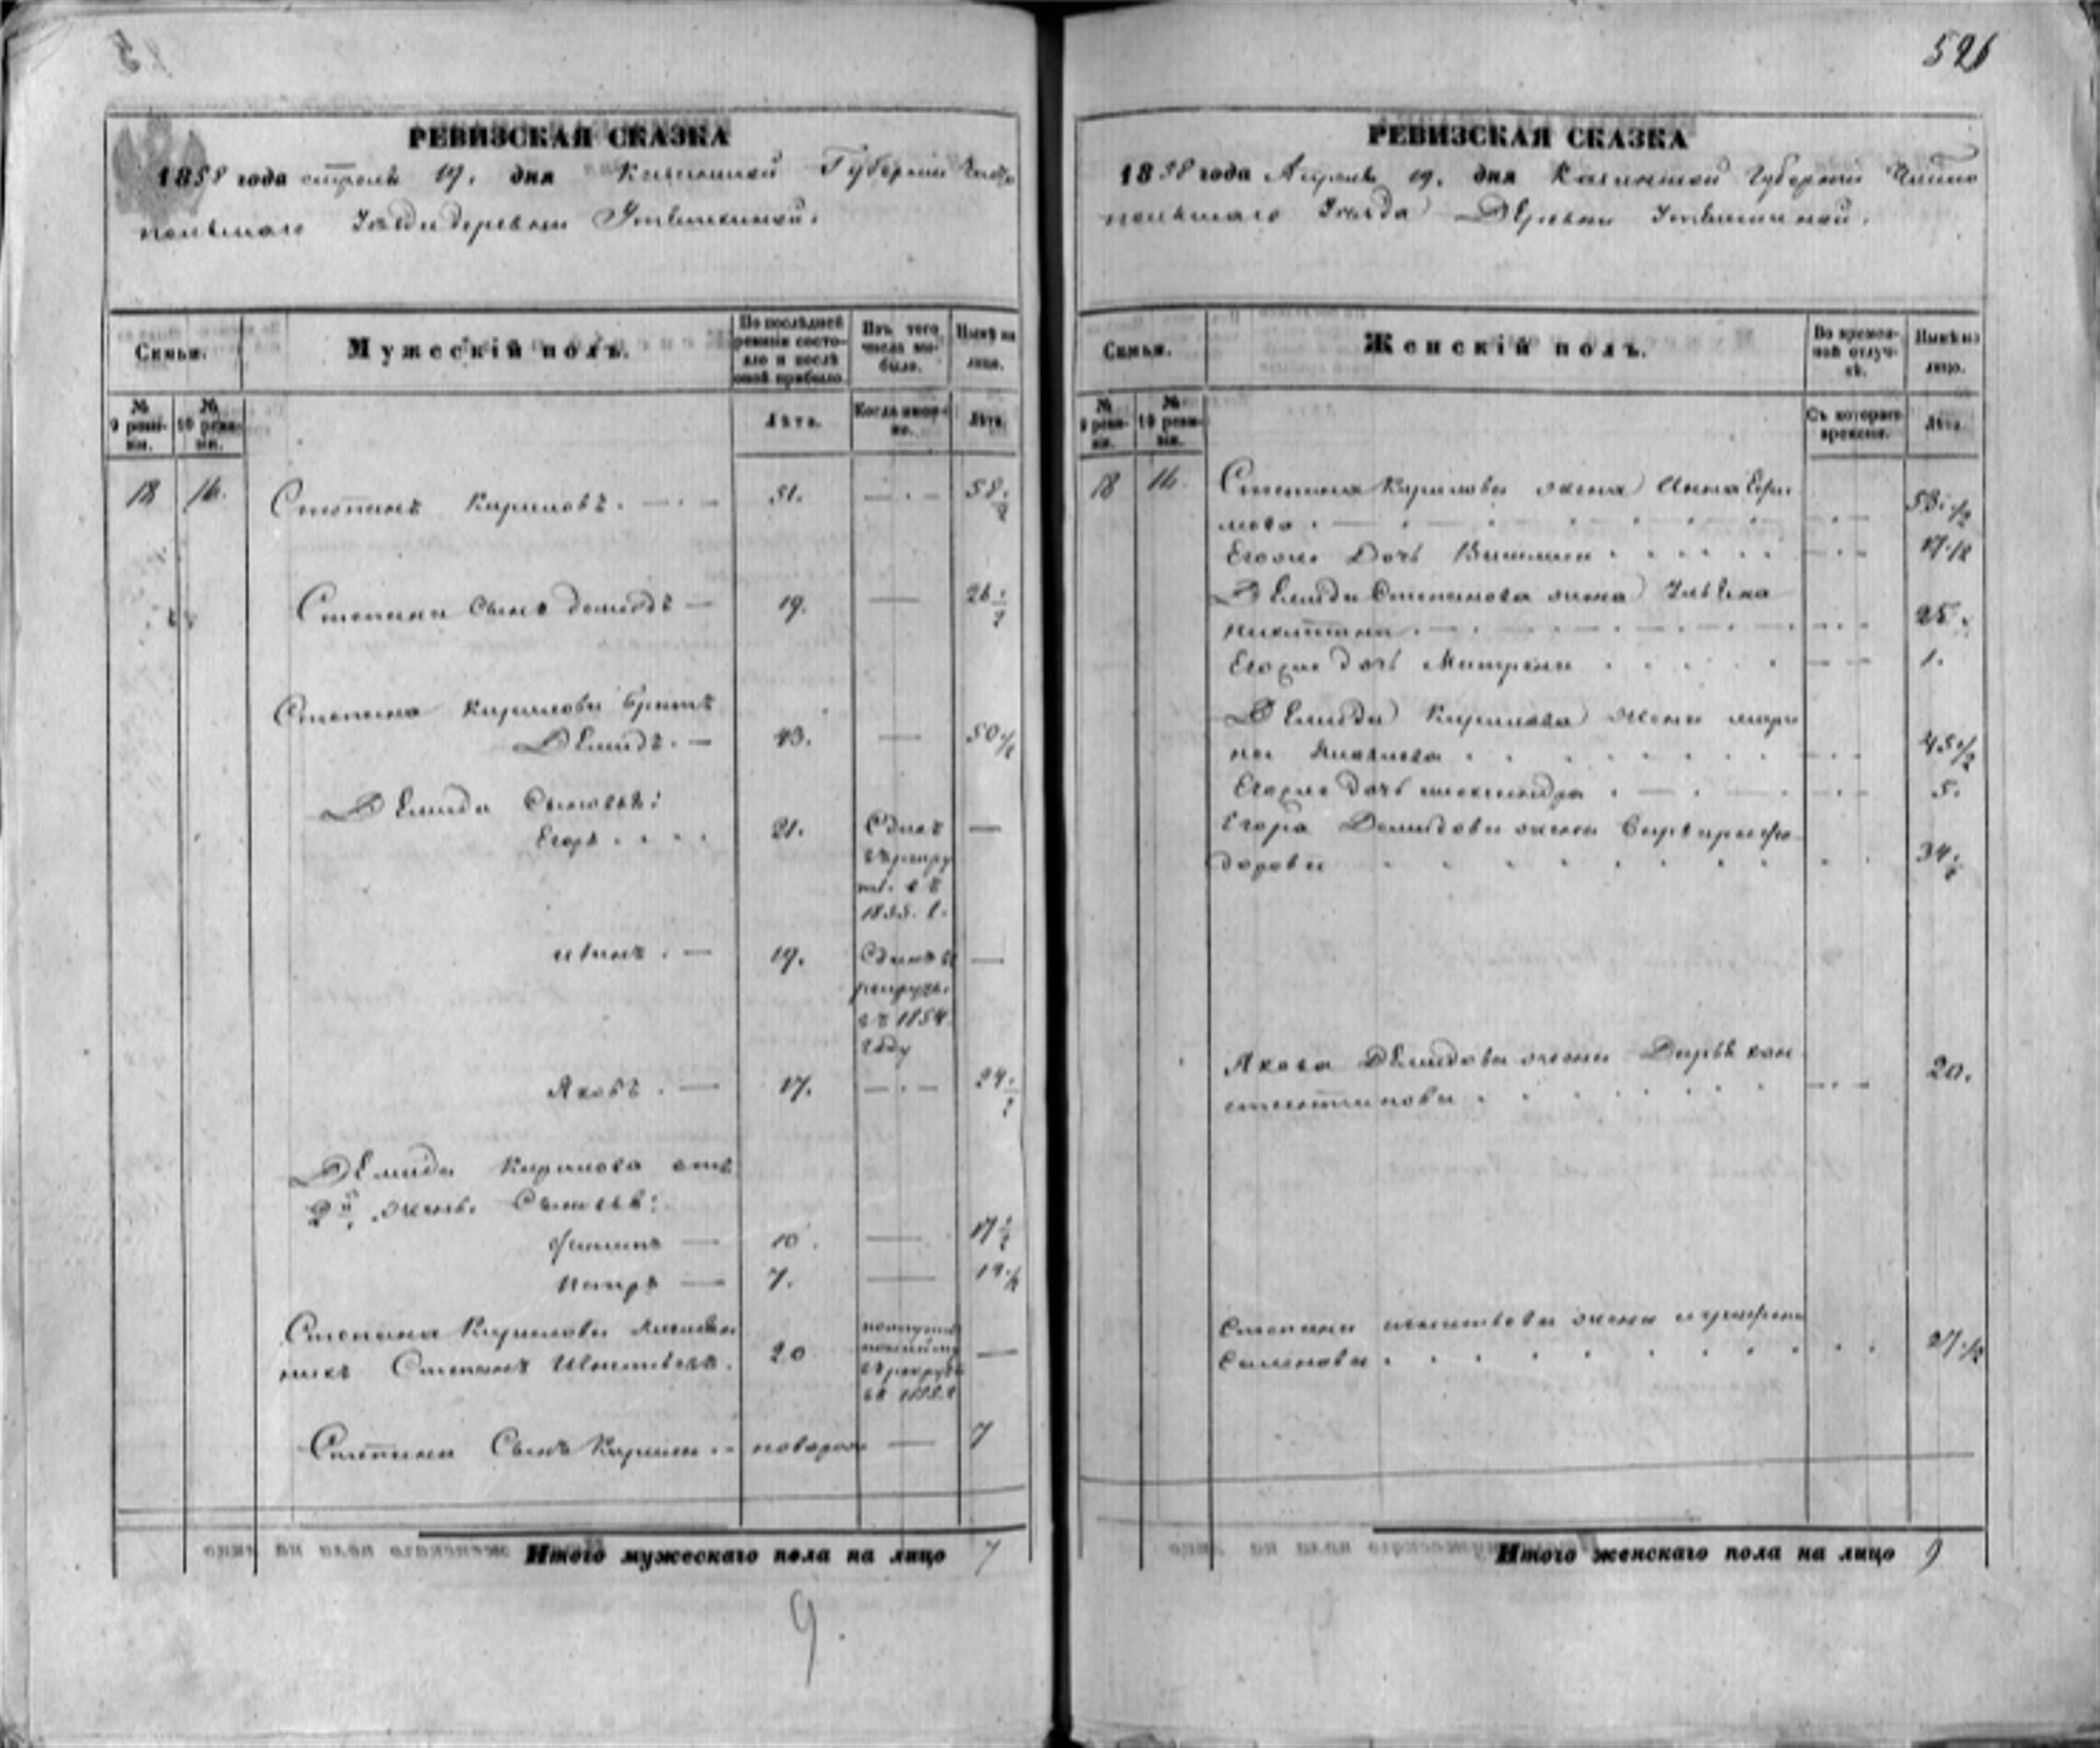 526
РЕВИЗСКАЯ СКАЗКА
1858 года Апреля 19. дня Казанской Губернии Чисто
польскаго Уезда деревни
Семьи.
Мужескій полъ.
По послѣдней ревизіи состояло и послѣ оной прибыло.
Изъ того числа выбыло.
Нынѣ на лицо.
№ 9 ревизіи.
№ 10 ревизіи.
Лѣта.
Когда именно.
Лѣта.
18 16. Степанъ Кириловъ. — 51. — 58 1/2
Степана сынъ Демидъ — 19. — 26 1/2
Степана Кирилова братъ
Демидъ. — 43. — 50 1/2
Демида Сыновья:
Егоръ 21. Сданъ —
въ рекру
ты въ
1855. г.
Иванъ. — 19. Сданъ в —
рекруты
въ 1854
году
Яковъ. — 17. — 24 1/2
Демида Кирилова отъ
2й жены Сыновья:
Филипъ — 10. — 17 1/2
Петръ — 7. — 14 1/2
Степана Кирилова
Степанъ 20 —
въ рекруты
Степана Сынъ Кирила — новорож — 7
Итого мужескаго пола на лицо 7
9.
РЕВИЗСКАЯ СКАЗКА
1858 года Апреля 19. дня Казанской Губернии Чисто
польскаго Уезда Деревни
Семьи.
Женскій полъ.
Во временной отлучкѣ.
Нынѣ на лицо.
№ 9 ревизіи.
№ 10 ревизіи.
Съ котораго времени.
Лѣта.
18 16. Степана Кирилова жена Анна Ефи
мова 58 1/2
Егоже Дочь 17 1/2
Демида Степанова жена
Никитина 25.
Егоже дочь Матрена 1.
Демида Кирилова жена Мари
на 45 1/2
Егоже дочь Александра 5.
Егора Демидова жена Варвара Фе
дорова 34 1/2
Якова Демидова жена Дарья Кон
стантинова 20.
Степана жена Аграфена
Семенова 27 1/2
Итого женскаго пола на лицо 9